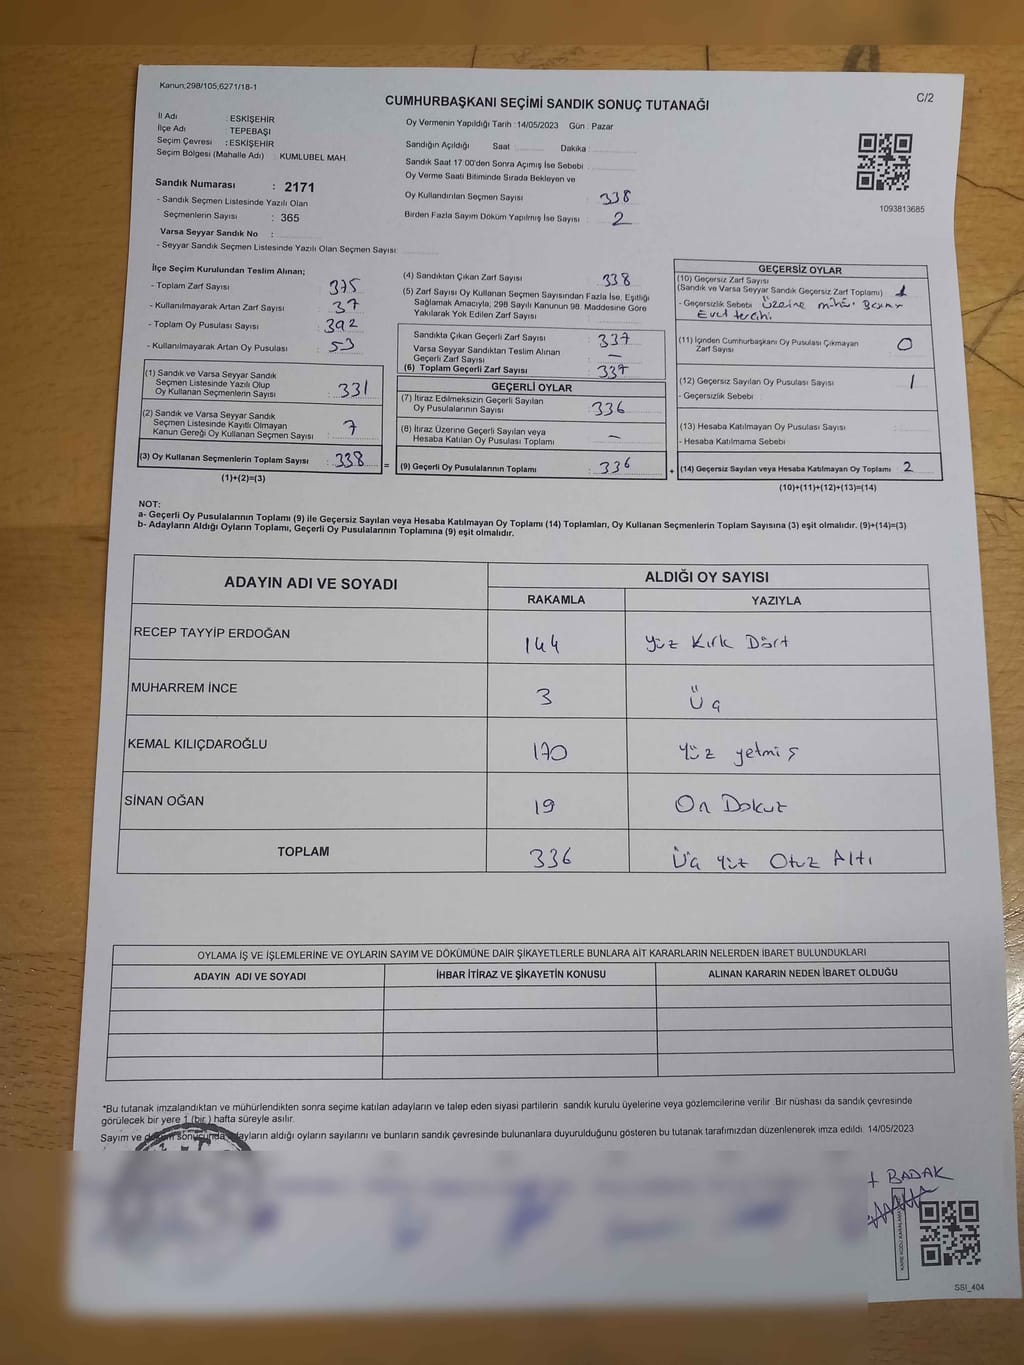 Kanun;298/105,6271/18-1
C/2
CUMHURBAŞKANI SEÇİMİ SANDIK SONUÇ TUTANAĞI
İl Adı : ESKİŞEHİR
İlçe Adı : TEPEBAŞI
Seçim Çevresi : ESKİŞEHİR
Seçim Bölgesi (Mahalle Adı) : KUMLUBEL MAH.
Sandık Numarası : 2171
- Sandık Seçmen Listesinde Yazılı Olan
Seçmenlerin Sayısı : 365
Varsa Seyyar Sandık No :
- Seyyar Sandık Seçmen Listesinde Yazılı Olan Seçmen Sayısı:
Oy Vermenin Yapıldığı Tarih :14/05/2023 Gün : Pazar
Sandığın Açıldığı Saat Dakika :
Sandık Saat 17.00'den Sonra Açımış İse Sebebi
Oy Verme Saati Bitiminde Sırada Bekleyen ve
Oy Kullandırılan Seçmen Sayısı : 338
Birden Fazla Sayım Döküm Yapılmış İse Sayısı : 2
1093813685
İlçe Seçim Kurulundan Teslim Alınan;
- Toplam Zarf Sayısı : 375
- Kullanılmayarak Artan Zarf Sayısı : 37
- Toplam Oy Pusulası Sayısı : 392
- Kullanılmayarak Artan Oy Pusulası : 53
(1) Sandık ve Varsa Seyyar Sandık
Seçmen Listesinde Yazılı Olup
Oy Kullanan Seçmenlerin Sayısı : 331
(2) Sandık ve Varsa Seyyar Sandık
Seçmen Listesinde Kayıtlı Olmayan
Kanun Gereği Oy Kullanan Seçmen Sayısı : 7
(3) Oy Kullanan Seçmenlerin Toplam Sayısı : 338
(1)+(2)=(3)
(4) Sandıktan Çıkan Zarf Sayısı : 338
(5) Zarf Sayısı Oy Kullanan Seçmen Sayısından Fazla İse, Eşitliği
Sağlamak Amacıyla, 298 Sayılı Kanunun 98. Maddesine Göre
Yakılarak Yok Edilen Zarf Sayısı :
Sandıkta Çıkan Geçerli Zarf Sayısı : 337
Varsa Seyyar Sandıktan Teslim Alınan
Geçerli Zarf Sayısı : —
(6) Toplam Geçerli Zarf Sayısı : 337
GEÇERLİ OYLAR
(7) İtiraz Edilmeksizin Geçerli Sayılan
Oy Pusulalarının Sayısı : 336
(8) İtiraz Üzerine Geçerli Sayılan veya
Hesaba Katılan Oy Pusulası Toplamı : —
= (9) Geçerli Oy Pusulalarının Toplamı : 336
GEÇERSİZ OYLAR
(10) Geçersiz Zarf Sayısı
(Sandık ve Varsa Seyyar Sandık Geçersiz Zarf Toplamı) : 1
- Geçersizlik Sebebi : Üzerine mühür
Evet tercihi
(11) İçinden Cumhurbaşkanı Oy Pusulası Çıkmayan
Zarf Sayısı 0
(12) Geçersiz Sayılan Oy Pusulası Sayısı : 1
- Geçersizlik Sebebi :
(13) Hesaba Katılmayan Oy Pusulası Sayısı :
- Hesaba Katılmama Sebebi
+ (14) Geçersiz Sayılan veya Hesaba Katılmayan Oy Toplamı : 2
(10)+(11)+(12)+(13)=(14)
NOT:
a- Geçerli Oy Pusulalarının Toplamı (9) ile Geçersiz Sayılan veya Hesaba Katılmayan Oy Toplamı (14) Toplamları, Oy Kullanan Seçmenlerin Toplam Sayısına (3) eşit olmalıdır. (9)+(14)=(3)
b- Adayların Aldığı Oyların Toplamı, Geçerli Oy Pusulalarının Toplamına (9) eşit olmalıdır.
ADAYIN ADI VE SOYADI ALDIĞI OY SAYISI
RAKAMLA YAZIYLA
RECEP TAYYİP ERDOĞAN 144 Yüz Kırk Dört
MUHARREM İNCE 3 Üç
KEMAL KILIÇDAROĞLU 170 Yüz yetmiş
SİNAN OĞAN 19 On Dokuz
TOPLAM 336 Üç Yüz Otuz Altı
OYLAMA İŞ VE İŞLEMLERİNE VE OYLARIN SAYIM VE DÖKÜMÜNE DAİR ŞİKAYETLERLE BUNLARA AİT KARARLARIN NELERDEN İBARET BULUNDUKLARI
ADAYIN ADI VE SOYADI İHBAR İTİRAZ VE ŞİKAYETİN KONUSU ALINAN KARARIN NEDEN İBARET OLDUĞU
*Bu tutanak imzalandıktan ve mühürlendikten sonra seçime katılan adayların ve talep eden siyasi partilerin sandık kurulu üyelerine veya gözlemcilerine verilir .Bir nüshası da sandık çevresinde
görülecek bir yere 1 (bir ) hafta süreyle asılır.
Sayım ve döküm sonucunda adayların aldığı oyların sayılarını ve bunların sandık çevresinde bulunanlara duyurulduğunu gösteren bu tutanak tarafımızdan düzenlenerek imza edildi. 14/05/2023
BADAK
SSI_404